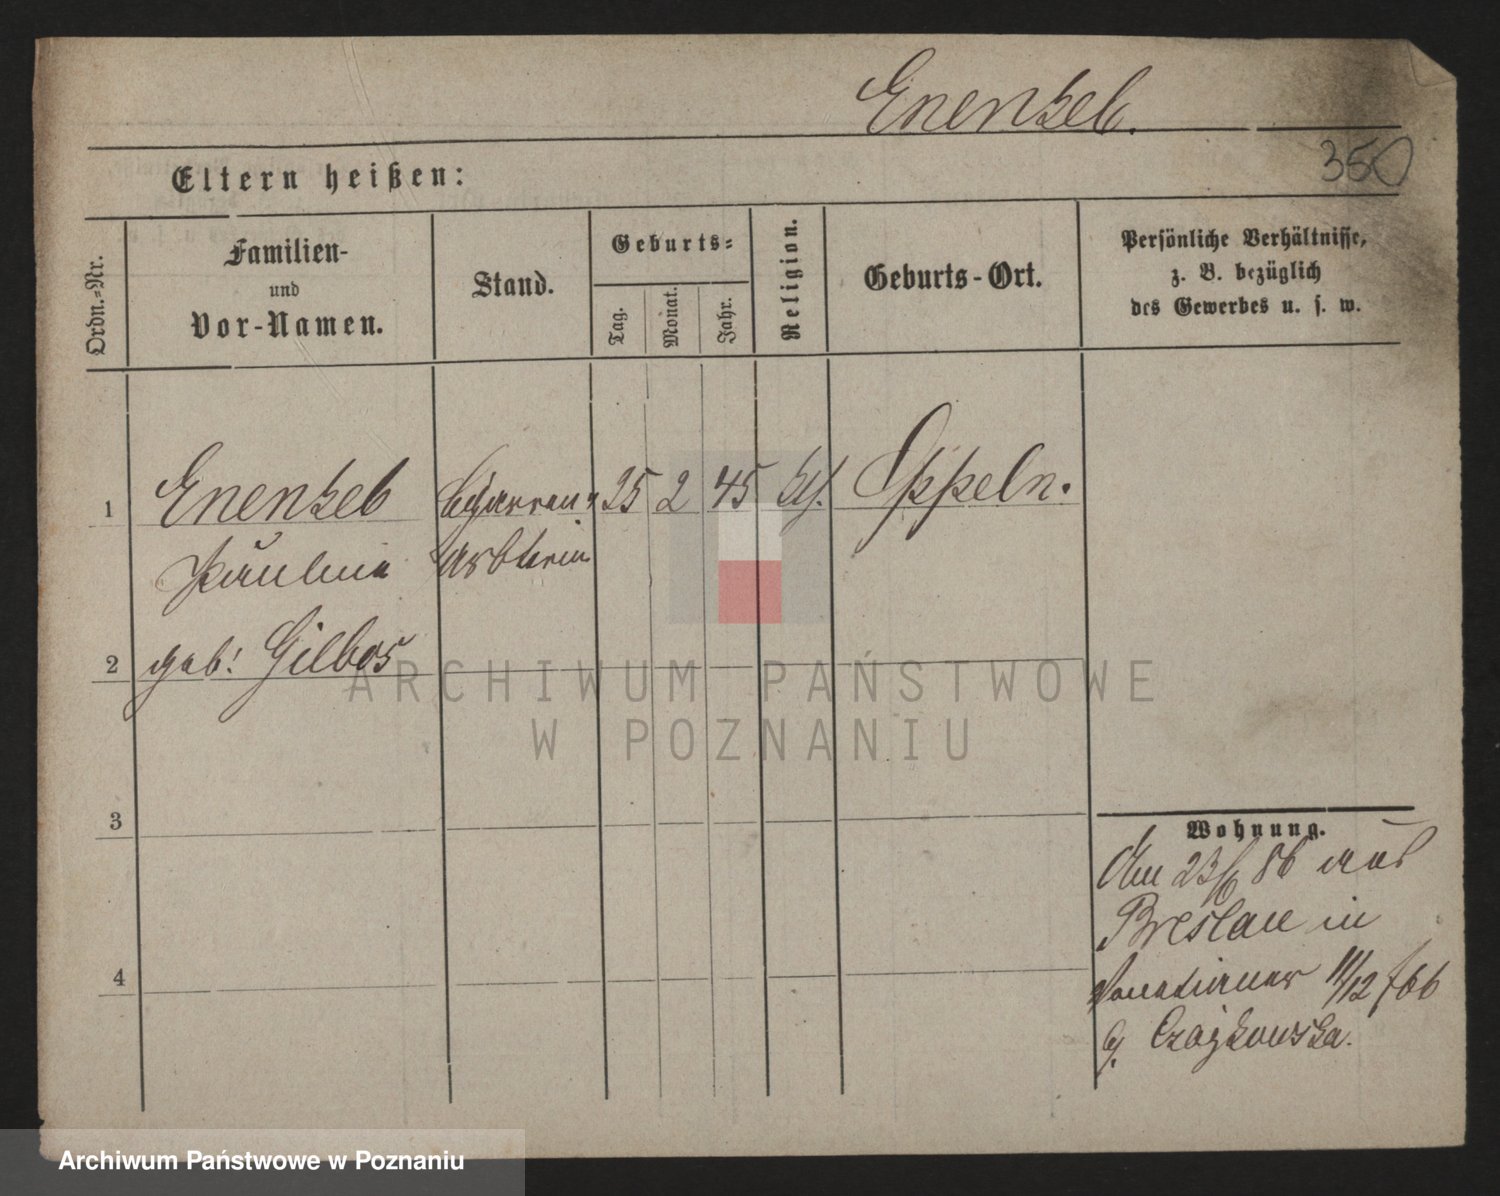 Enenkel.
350
Eltern heißen:
Ordn.-Nr.
Familien-
und
Vor-Namen.
Stand.
Geburts-
Tag.
Monat.
Jahr.
Religion.
Geburts-Ort.
Persönliche Verhältnisse,
z. B. bezüglich
des Gewerbes u. s. w.
1
Enenkel
Cigarren-
25
2
45
Oppeln.
Pauline
Arbterin
2
geb: Gilbos
ARCHIWUM PAŃSTWOWE
W POZNANIU
3
4
Wohnung.
Am 23/6 86 aus
Breslau in
11/12
b/ Czajkowska.
Archiwum Państwowe w Poznaniu